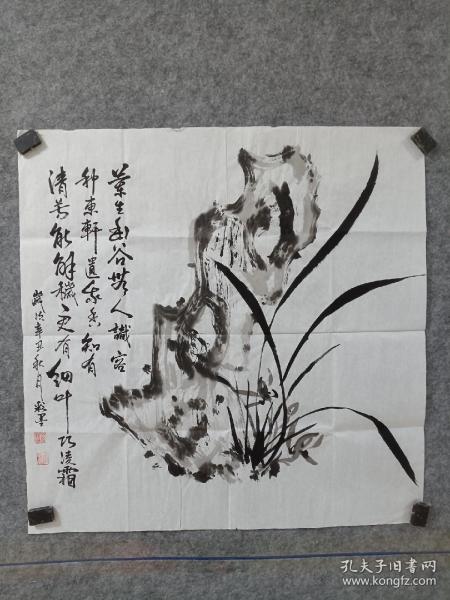 蘭生幽谷無人識客
種東軒遺我香知有
清芬能解穢更有細叶巧凌霜
歲次辛丑秋月
孔夫子旧书网
www.kongfz.com